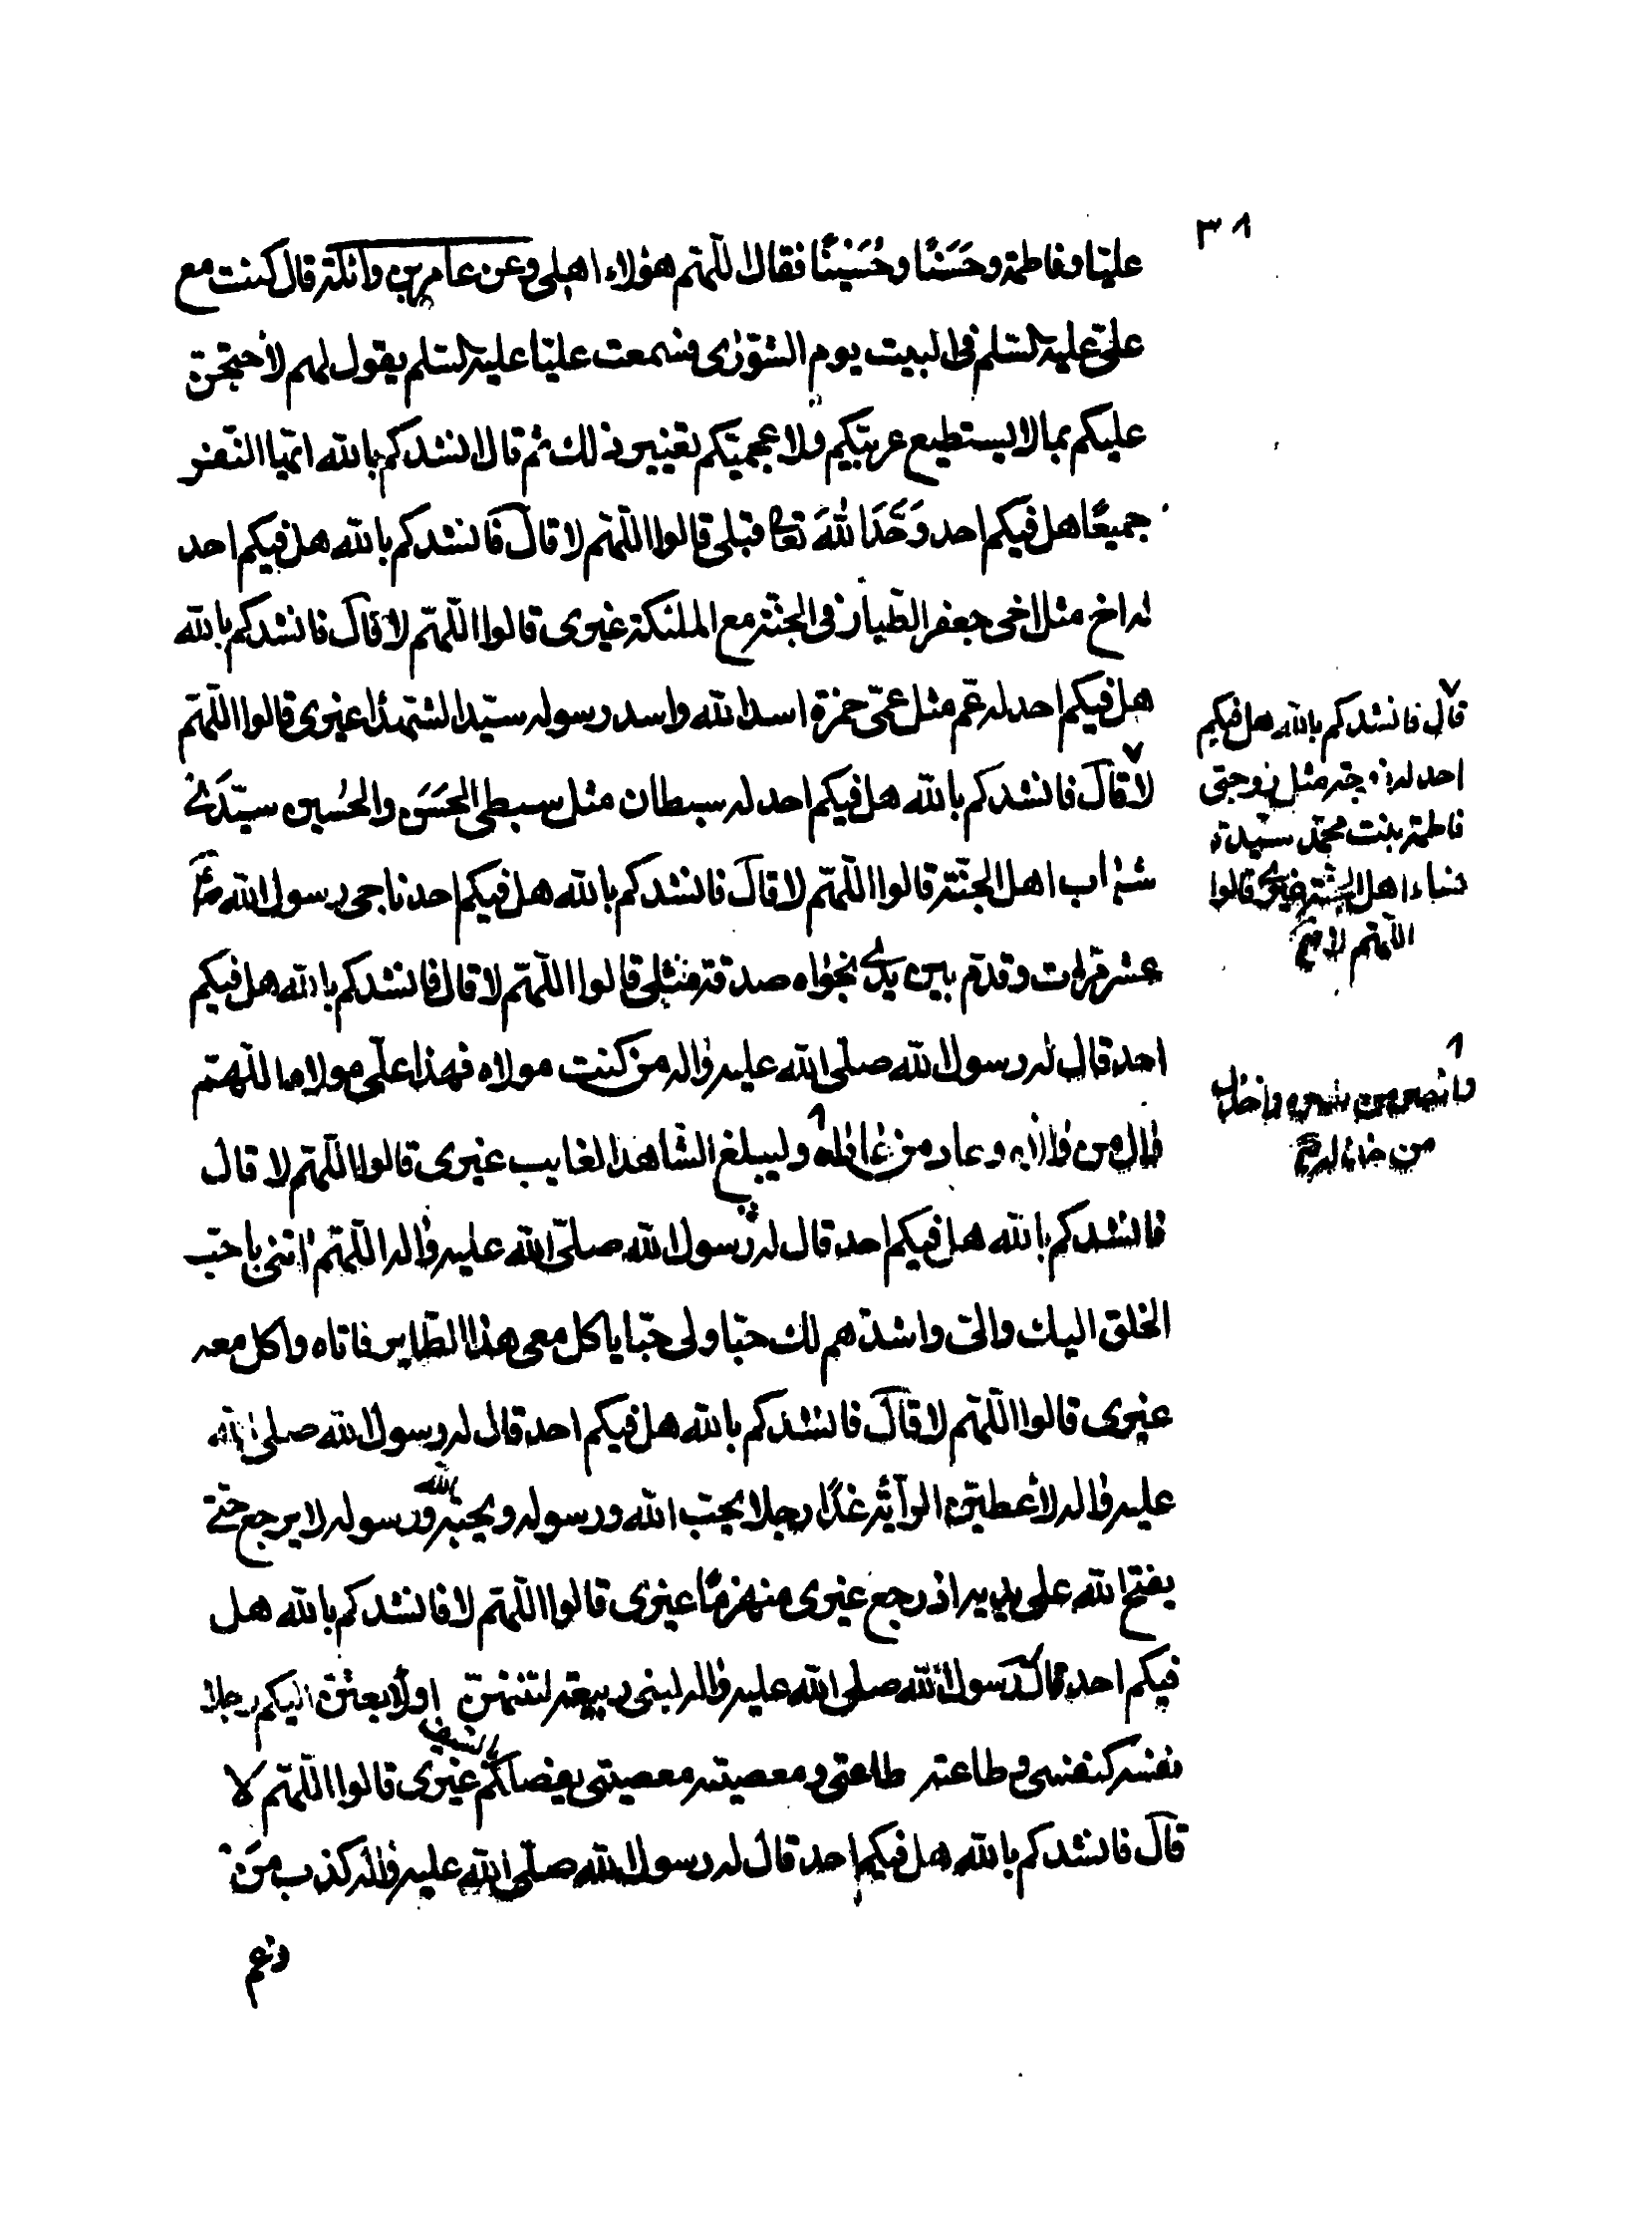 ٣٨
عليّا وفاطمة وحَسَنًا وحُسَيْنًا فقال اللّهمّ هؤلاء اهلى وعن عامر بن واثلة قال كنت مع
علىّ عليه السّلم فى البيت يوم الشّورٰى فسمعت عليّا عليه السّلم يقول لهم لأحتجّنّ
عليكم بما لا يستطيع عربيّكم ولا عجميّكم تغيير ذلك ثم قال انشدكم بالله ايّها النّفر
جميعًا هل فيكم احد وَحَّدَ اللهَ تعا قبلى قالوا اللّهمّ لا قال فانشدكم بالله هل فيكم احد
له اخ مثل اخى جعفر الطّيار فى الجنّة مع الملئكة غيرى قالوا اللّهمّ لا قال فانشدكم بالله
هل فيكم احد له عمّ مثل عمّى حمزة اسد الله واسد رسوله سيّد الشّهدٓا غيرى قالوا اللّهمّ
لا قال فانشدكم بالله هل فيكم احد له سبطان مثل سبطى الحَسَن والحُسين سيّدَىْ
شباب اهل الجنّة قالوا اللّهمّ لا قال فانشدكم بالله هل فيكم احد ناجى رسول الله
عشر مرّات وقدّم بين يدى نجواه صدقة مثلى قالوا اللّهمّ لا قال فانشدكم بالله هل فيكم
احد قال له رسول الله صلّى الله عليه وٰاله من كنت مولاه فهذا علّى مولاه اللّهمّ
وٰال من وٰالاه وعاد من عٰاداه وليبلغ الشّاهد الغايب غيرى قالوا اللّهمّ لا قال
فانشدكم بالله هل فيكم احد قال له رسول الله صلّى الله عليه وٰاله اللّهمّ ائتنى باحبّ
الخلق اليك والىّ واشدّهم لك حبّا ولى حبّا ياكل معى هذا الطّاير فاتاه واكل معه
غيرى قالوا اللّهمّ لا قال فانشدكم بالله هل فيكم احد قال له رسول الله صلى الله
عليه وٰاله لأعطينّ الرّآية غدًا رجلا يحبّ الله ورسوله ويحبّه الله ورسوله لا يرجع حتّى
يفتح الله على يديه اذ رجع غيرى منهزمًا غيرى قالوا اللّهمّ لا فانشدكم بالله هل
فيكم احد قال رسول الله صلى الله عليه وٰاله لبنى ربيعة لتنتهنّ او لأبعثنّ اليكم رجلا
نفسه كنفسى وطاعته طاعتى ومعصيته معصيتى يفصلكم بالسّيف غيرى قالوا اللّهمّ لا
قال فانشدكم بالله هل فيكم احد قال له رسول الله صلّى الله عليه وٰاله كذب مَنْ
زعم
قال فانشدكم بالله هل فيكم
احد له زوجة مثل زوجتى
فاطمة بنت محمّد سيّدة
نساء اهل الجنّة غيرى قالوا
اللّهمّ لا صح
وانصر من نصره واخذل
من خذله صح